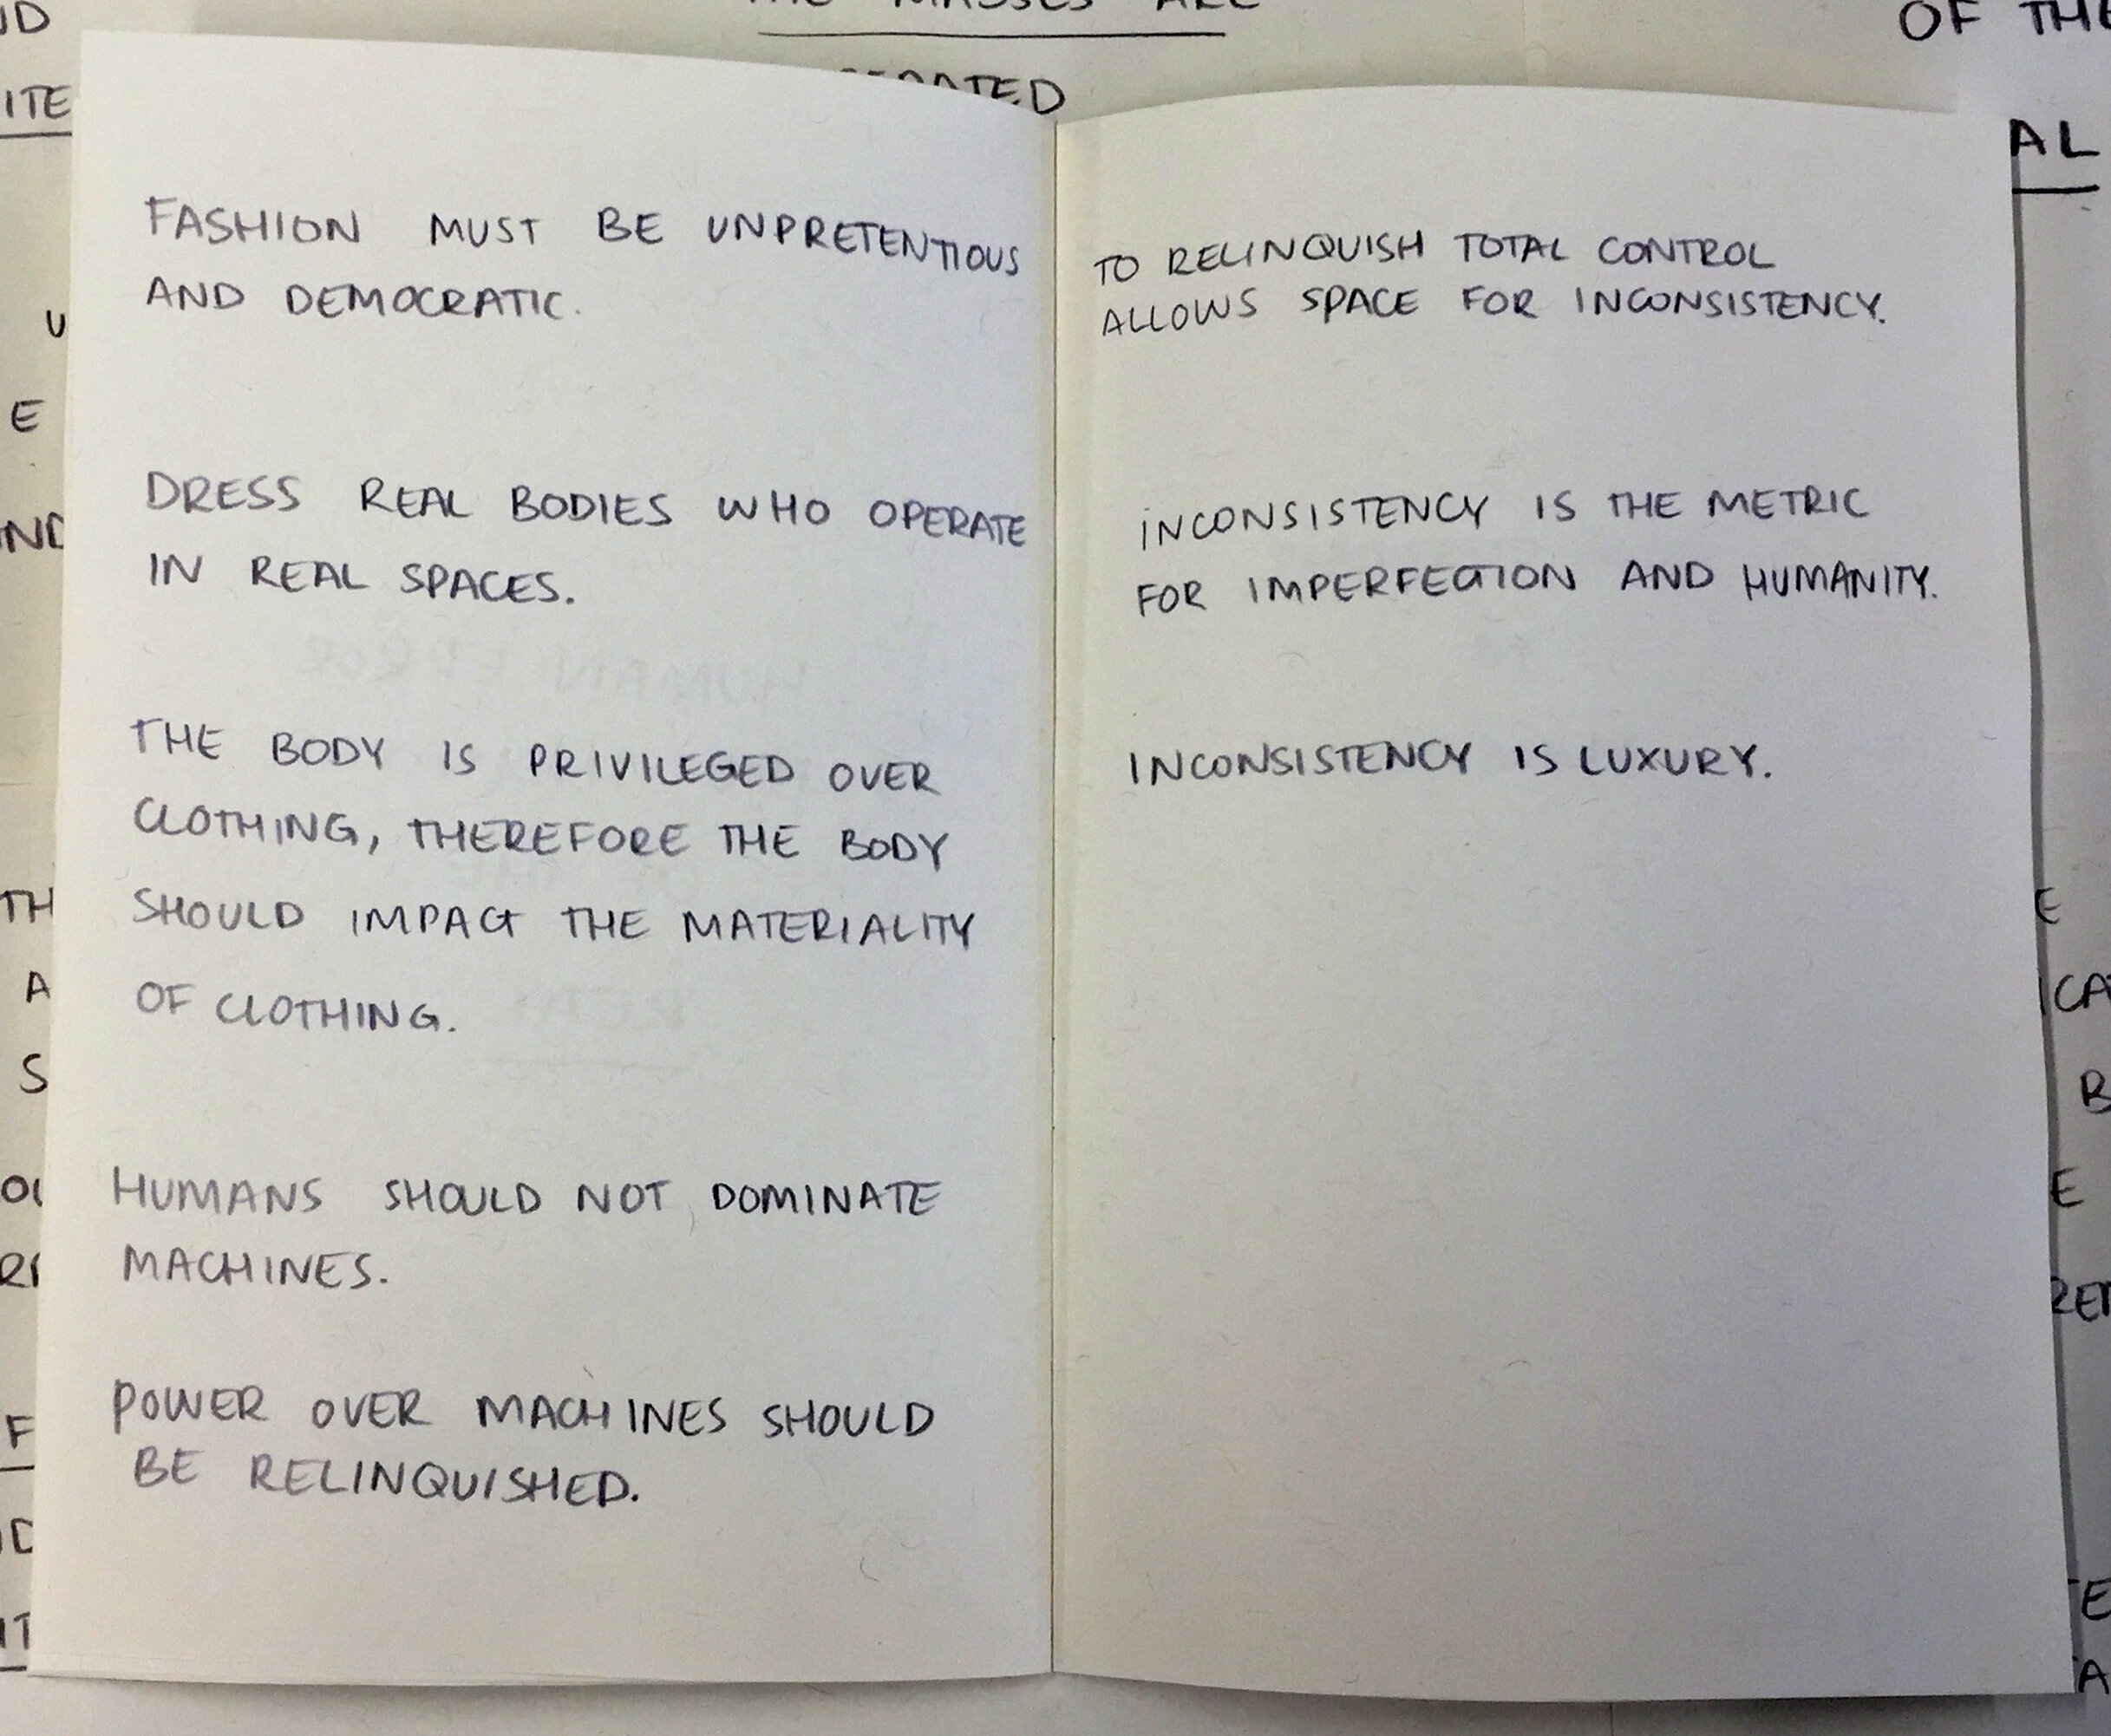 FASHION MUST BE UNPRETENTIOUS
AND DEMOCRATIC.
DRESS REAL BODIES WHO OPERATE
IN REAL SPACES.
THE BODY IS PRIVILEGED OVER
CLOTHING, THEREFORE THE BODY
SHOULD IMPACT THE MATERIALITY
OF CLOTHING.
HUMANS SHOULD NOT DOMINATE
MACHINES.
POWER OVER MACHINES SHOULD
BE RELINQUISHED.
TO RELINQUISH TOTAL CONTROL
ALLOWS SPACE FOR INCONSISTENCY.
INCONSISTENCY IS THE METRIC
FOR IMPERFECTION AND HUMANITY.
INCONSISTENCY IS LUXURY.
MASSES ARE
OF THE